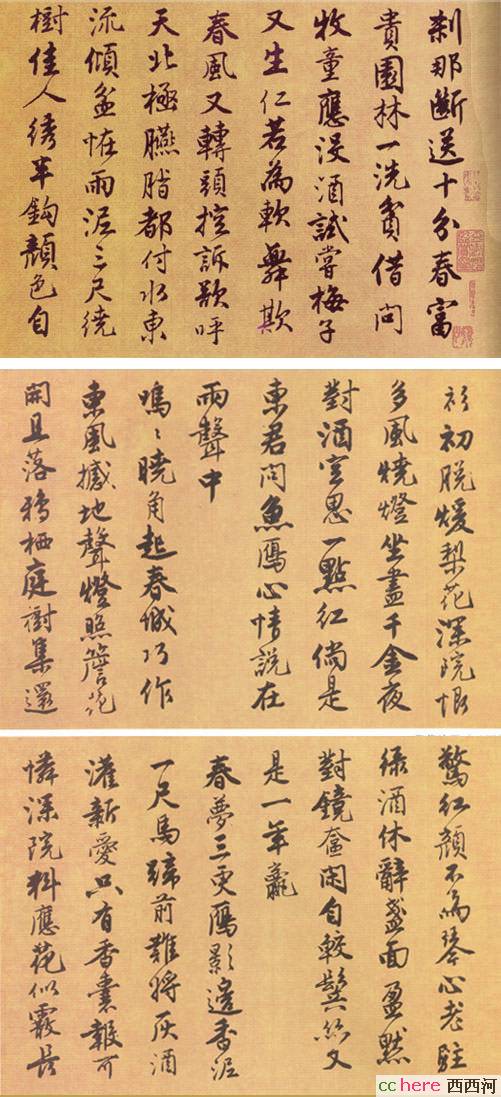 刹那斷送十分春富
貴園林一洗貧借問
牧童應没酒試嘗梅子
又生仁若為軟舞欺
春風又轉頭控訴欲呼
天北極臙脂都付水東
流傾盆怪雨泥三尺繞
樹佳人綉半鈎顏色自
衫初脱煖梨花深院恨
多風燒燈坐盡千金夜
對酒空思一點紅倘是
東君問魚鴈心情説在
雨聲中
嗚〻曉角起春城巧作
東風撼地聲燈照簷花
開且落鴉栖庭樹集還
驚紅顏不為琴心老駐
緑酒休辭盞面盈黙
對鏡奩閑自較鬢絲又
是一年虧
春夢三更鴈影邊香泥
一尺馬蹄前難將灰酒
灌新愛只有香囊報可
憐深院料應花似霰長
cchere 西西河